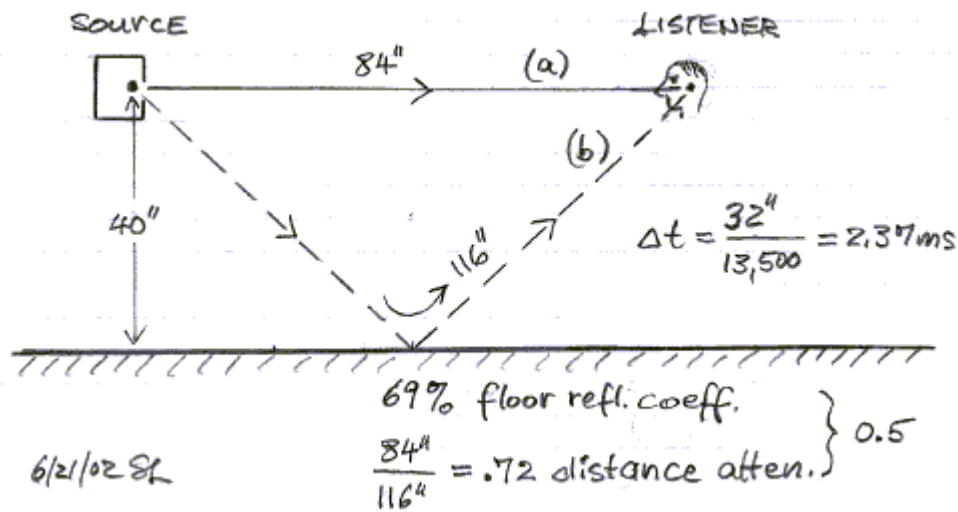 SOURCE
LISTENER
84"
(a)
(b)
40"
116"
Δt = 32" / 13,500 = 2.37ms
69% floor refl. coeff.
84" / 116" = .72 distance atten.
} 0.5
6/21/02 SL